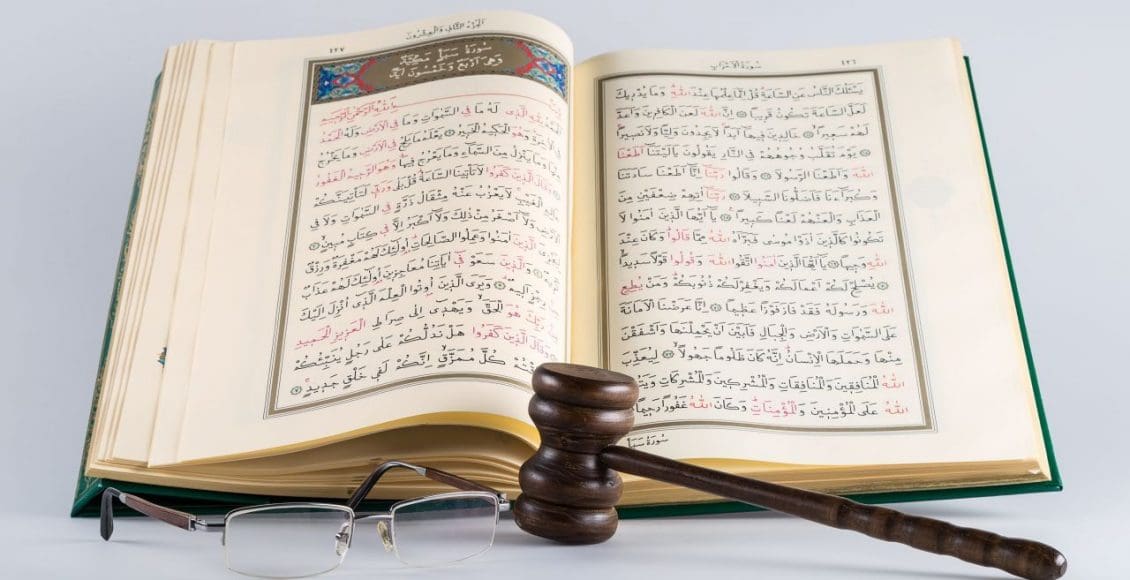 سُورَةُ الْاَحْزَابِ ٤٢٦
يَسْئَلُكَ النَّاسُ عَنِ السَّاعَةِ قُلْ اِنَّمَا عِلْمُهَا عِنْدَ اللهِ وَمَا يُدْرِيكَ
لَعَلَّ السَّاعَةَ تَكُونُ قَرِيبًا ۞ اِنَّ اللهَ لَعَنَ الْكَافِرِينَ وَاَعَدَّ
لَهُمْ سَعِيرًا ۞ خَالِدِينَ فِيهَا اَبَدًا لَا يَجِدُونَ وَلِيًّا وَلَا نَصِيرًا
۞ يَوْمَ تُقَلَّبُ وُجُوهُهُمْ فِي النَّارِ يَقُولُونَ يَا لَيْتَنَا اَطَعْنَا
اللهَ وَاَطَعْنَا الرَّسُولَا ۞ وَقَالُوا رَبَّنَا اِنَّا اَطَعْنَا سَادَتَنَا
وَكُبَرَاءَنَا فَاَضَلُّونَا السَّبِيلَا ۞ رَبَّنَا اٰتِهِمْ ضِعْفَيْنِ مِنَ
الْعَذَابِ وَالْعَنْهُمْ لَعْنًا كَبِيرًا ۞ يَا اَيُّهَا الَّذِينَ اٰمَنُوا لَا
تَكُونُوا كَالَّذِينَ اٰذَوْا مُوسٰى فَبَرَّاَهُ اللهُ مِمَّا قَالُوا وَكَانَ عِنْدَ
اللهِ وَجِيهًا ۞ يَا اَيُّهَا الَّذِينَ اٰمَنُوا اتَّقُوا اللهَ وَقُولُوا قَوْلًا سَدِيدًا
۞ يُصْلِحْ لَكُمْ اَعْمَالَكُمْ وَيَغْفِرْ لَكُمْ ذُنُوبَكُمْ وَمَنْ يُطِعِ
اللهَ وَرَسُولَهُ فَقَدْ فَازَ فَوْزًا عَظِيمًا ۞ اِنَّا عَرَضْنَا الْاَمَانَةَ
عَلَى السَّمٰوَاتِ وَالْاَرْضِ وَالْجِبَالِ فَاَبَيْنَ اَنْ يَحْمِلْنَهَا وَاَشْفَقْنَ
مِنْهَا وَحَمَلَهَا الْاِنْسَانُ اِنَّهُ كَانَ ظَلُومًا جَهُولًا ۞ لِيُعَذِّبَ
اللهُ الْمُنَافِقِينَ وَالْمُنَافِقَاتِ وَالْمُشْرِكِينَ وَالْمُشْرِكَاتِ
اللهُ عَلَى الْمُؤْمِنِينَ وَالْمُؤْمِنَاتِ وَكَانَ اللهُ غَفُورًا رَحِيمًا
سُورَةُ سَبَأٍ
اَلْجُزْءُ الثَّانِي وَالْعِشْرُونَ ٤٢٧
سُورَةُ سَبَأٍ مَكِّيَّةٌ
وَهِيَ اَرْبَعٌ وَخَمْسُونَ اٰيَةً
بِسْمِ اللهِ الرَّحْمٰنِ الرَّحِيمِ
اَلْحَمْدُ لِلّٰهِ الَّذِي لَهُ مَا فِي السَّمٰوَاتِ وَمَا فِي الْاَرْضِ وَلَهُ الْحَمْدُ
فِي الْاٰخِرَةِ وَهُوَ الْحَكِيمُ الْخَبِيرُ ۞ يَعْلَمُ مَا يَلِجُ فِي الْاَرْضِ وَمَا يَخْرُجُ
مِنْهَا وَمَا يَنْزِلُ مِنَ السَّمَاءِ وَمَا يَعْرُجُ فِيهَا وَهُوَ الرَّحِيمُ الْغَفُورُ
۞ وَقَالَ الَّذِينَ كَفَرُوا لَا تَأْتِينَا السَّاعَةُ قُلْ بَلٰى وَرَبِّي لَتَأْتِيَنَّكُمْ
عَالِمِ الْغَيْبِ لَا يَعْزُبُ عَنْهُ مِثْقَالُ ذَرَّةٍ فِي السَّمٰوَاتِ وَلَا فِي
الْاَرْضِ وَلَا اَصْغَرُ مِنْ ذٰلِكَ وَلَا اَكْبَرُ اِلَّا فِي كِتَابٍ مُبِينٍ ۞
لِيَجْزِيَ الَّذِينَ اٰمَنُوا وَعَمِلُوا الصَّالِحَاتِ اُولٰئِكَ لَهُمْ مَغْفِرَةٌ وَرِزْقٌ
كَرِيمٌ ۞ وَالَّذِينَ سَعَوْ فِي اٰيَاتِنَا مُعَاجِزِينَ اُولٰئِكَ لَهُمْ عَذَابٌ
مِنْ رِجْزٍ اَلِيمٌ ۞ وَيَرَى الَّذِينَ اُوتُوا الْعِلْمَ الَّذِي اُنْزِلَ اِلَيْكَ
مِنْ رَبِّكَ هُوَ الْحَقَّ وَيَهْدِي اِلٰى صِرَاطِ الْعَزِيزِ الْحَمِيدِ
۞ وَقَالَ الَّذِينَ كَفَرُوا هَلْ نَدُلُّكُمْ عَلٰى رَجُلٍ يُنَبِّئُكُمْ
اِذَا مُزِّقْتُمْ كُلَّ مُمَزَّقٍ اِنَّكُمْ لَفِي خَلْقٍ جَدِيدٍ ۞